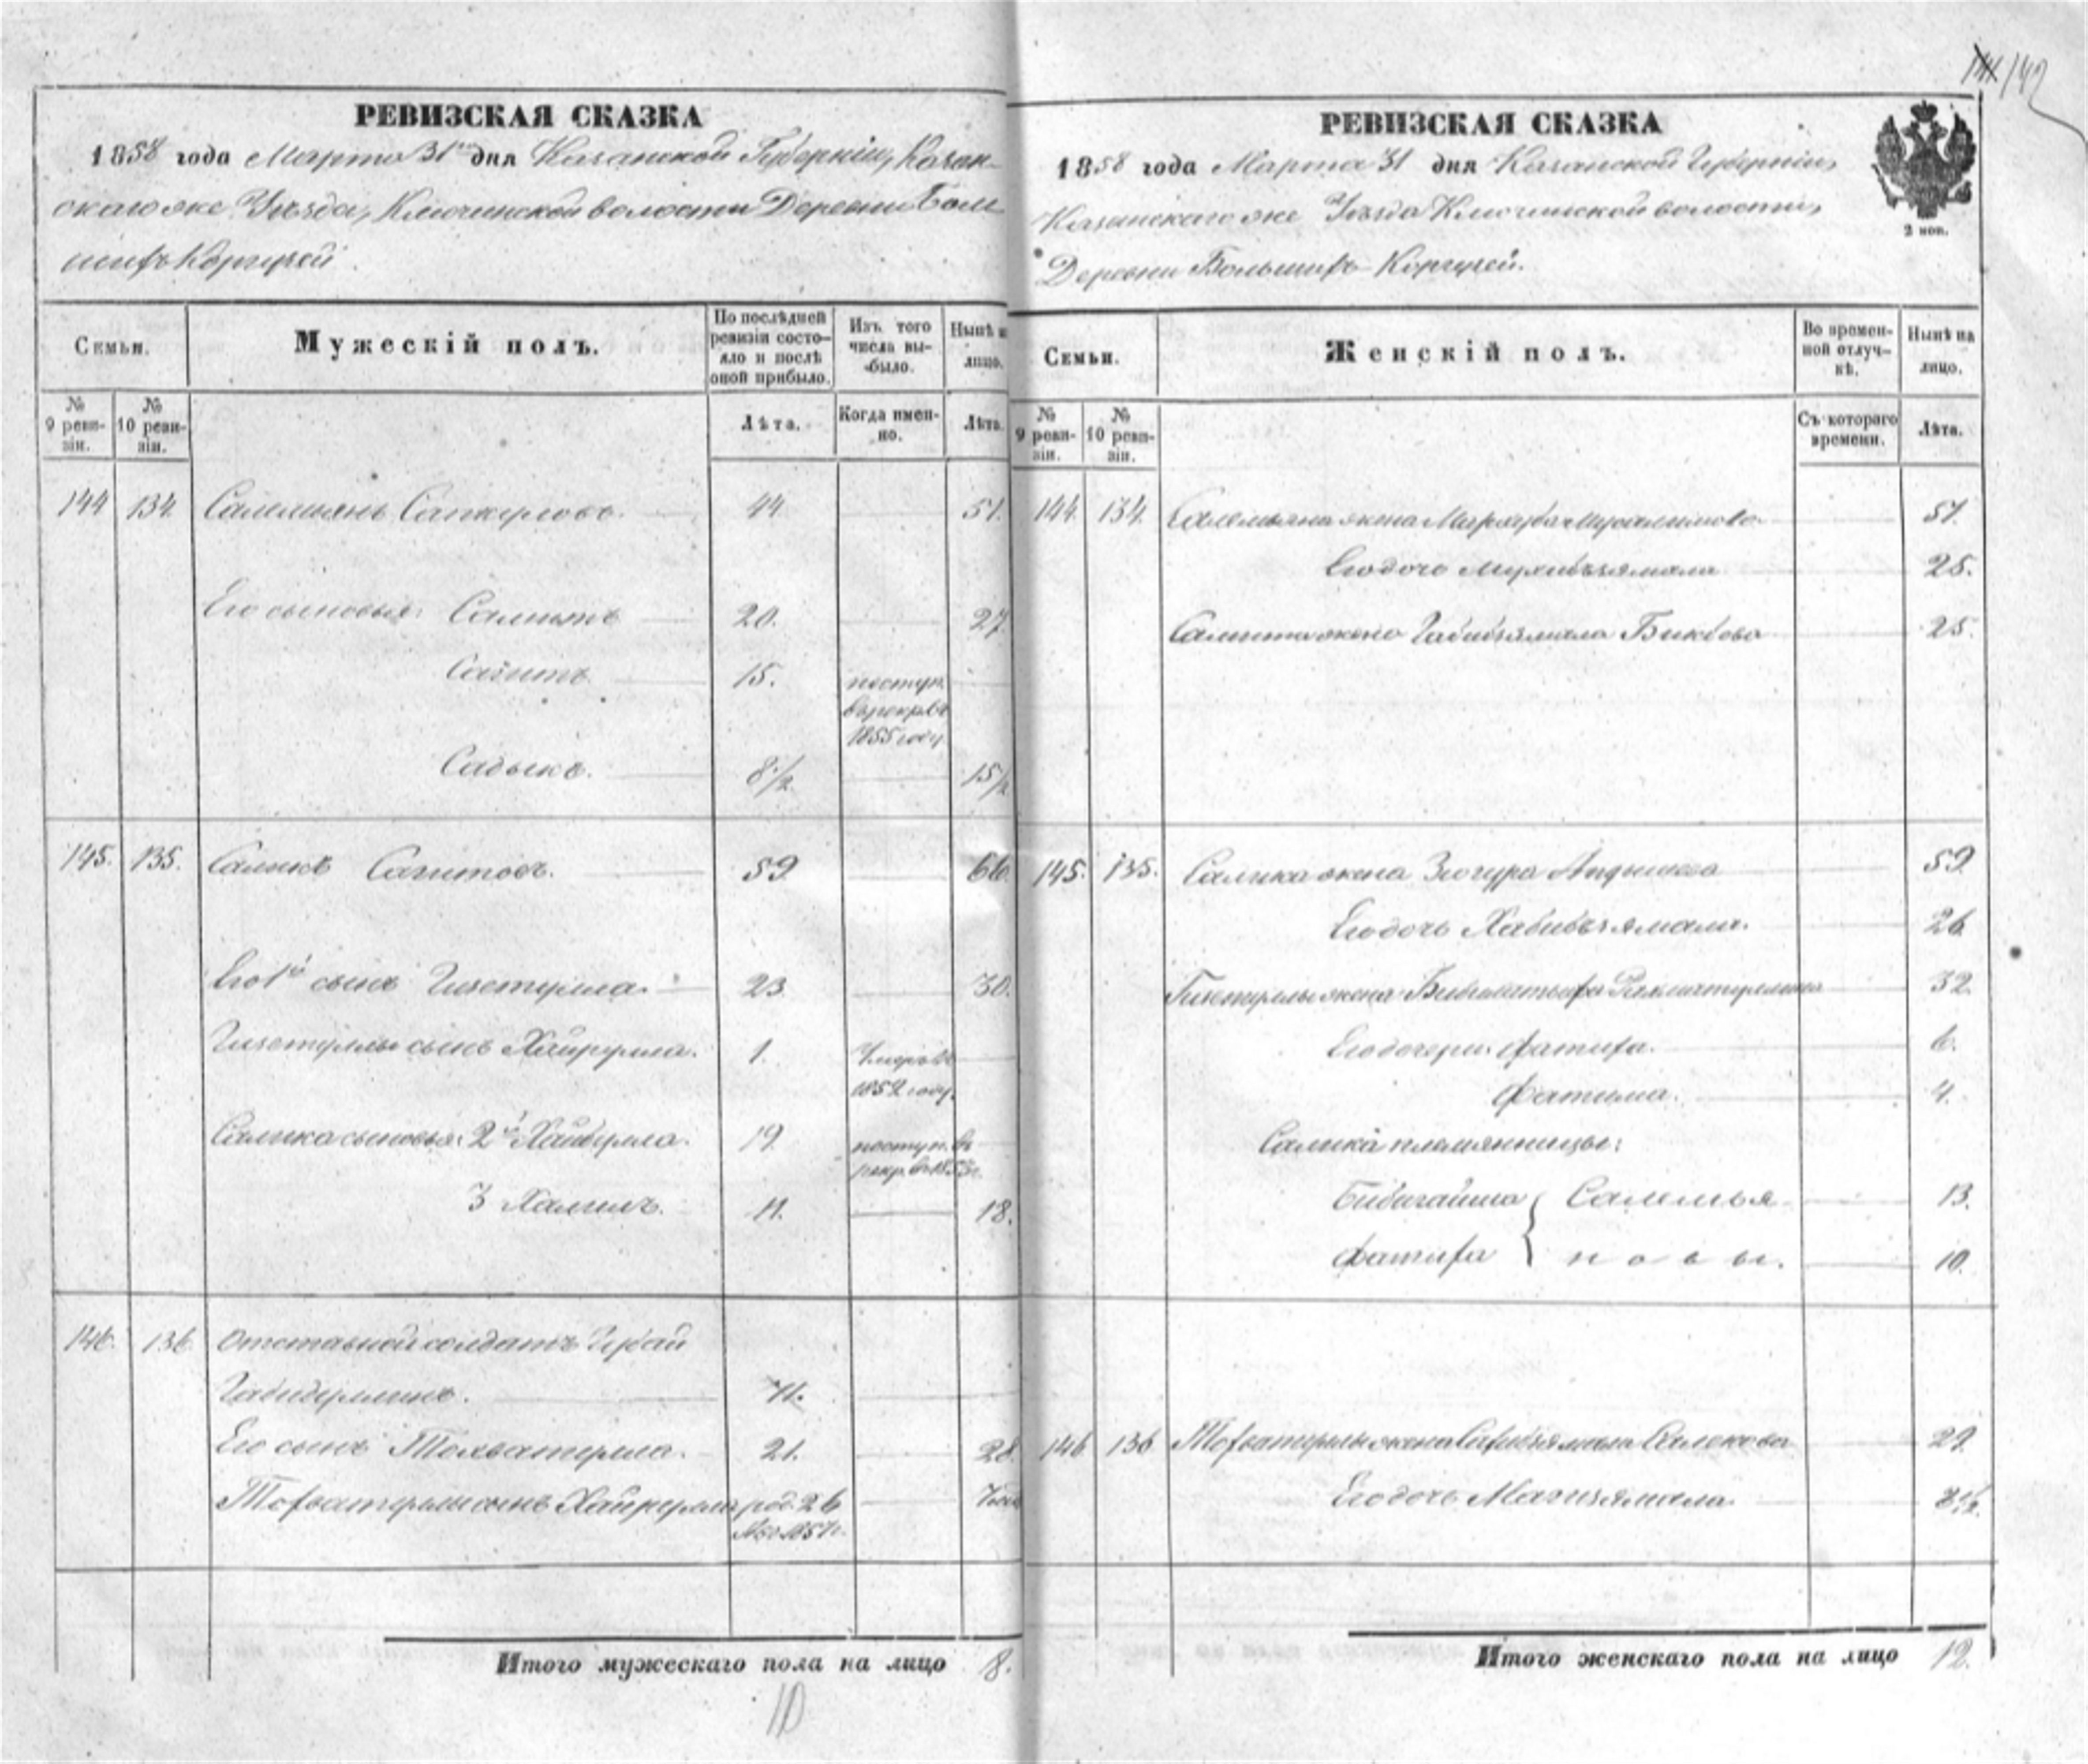 141/142
РЕВИЗСКАЯ СКАЗКА
1858 года Марта 31го дня Казанской Губерніи, Казан-
скаго же Уезда, Ключинской волости Деревни Боль
шихъ Коргузей
Семьи.
Мужескій полъ.
По послѣдней ревизіи состо-
яло и послѣ
оной прибыло.
Изъ того
числа вы-
было.
Нынѣ н
лицо.
№
9 реви-
зіи.
№
10 реви-
зіи.
Лѣта.
Когда имен-
но.
Лѣта.
144 134 Салемьянъ Сапкуловъ. 44 51.
Его сыновья: Салитъ 20. 27.
Сагитъ 15. поступ.
в рекр. въ
1855 году
Садыкъ. 8 1/2 15 1/2
145. 135. Саликъ Сагитовъ. 59 66.
Его 1й сынъ Гизетулла. 23 30.
Гизетуллы сынъ Хайрулла. 1. Умеръ въ
1852 году.
Салика сыновья: 2й Хайбулла. 19. поступ. въ
рекр. въ 1853 г.
3 Халилъ. 11. 18.
146. 136 Отставной солдатъ Губай
Габидуллинъ. 71.
Его сынъ Тохватулла. 21. 28.
Тохватуллы сынъ Хайрулла род. 26
1857 г.
Итого мужескаго пола на лицо 8.
10
РЕВИЗСКАЯ СКАЗКА
1858 года Марта 31 дня Казанской Губерніи,
Казанскаго же Уезда Ключинской волости,
Деревни Большихъ Коргузей.
2 коп.
Семьи.
Женскій полъ.
Во времен-
ной отлуч-
кѣ.
Нынѣ на
лицо.
№
9 реви-
зіи.
№
10 реви-
зіи.
Съ котораго
времени.
Лѣта.
144 134. Салемьяна жена Мархуба Мусалимова. 51.
Его дочь Мухибзямала 25.
Салита жена Габибзямала Бикбова 25.
145. 135. Салика жена Зюгура 59.
Его дочь Хабибзямал. 26
Гизетуллы жена Бибилатыфа Рахматуллина 32
Его дочери: Фатиха. 6.
Фатима. 4.
Салика племянницы:
Бибигайша Салемья 13.
Фатиха новы. 10.
146 136 Тохватуллы жена Сахибзямала Салекова 29.
Его дочь Магизямала. 3 1/2.
Итого женскаго пола на лицо 12.